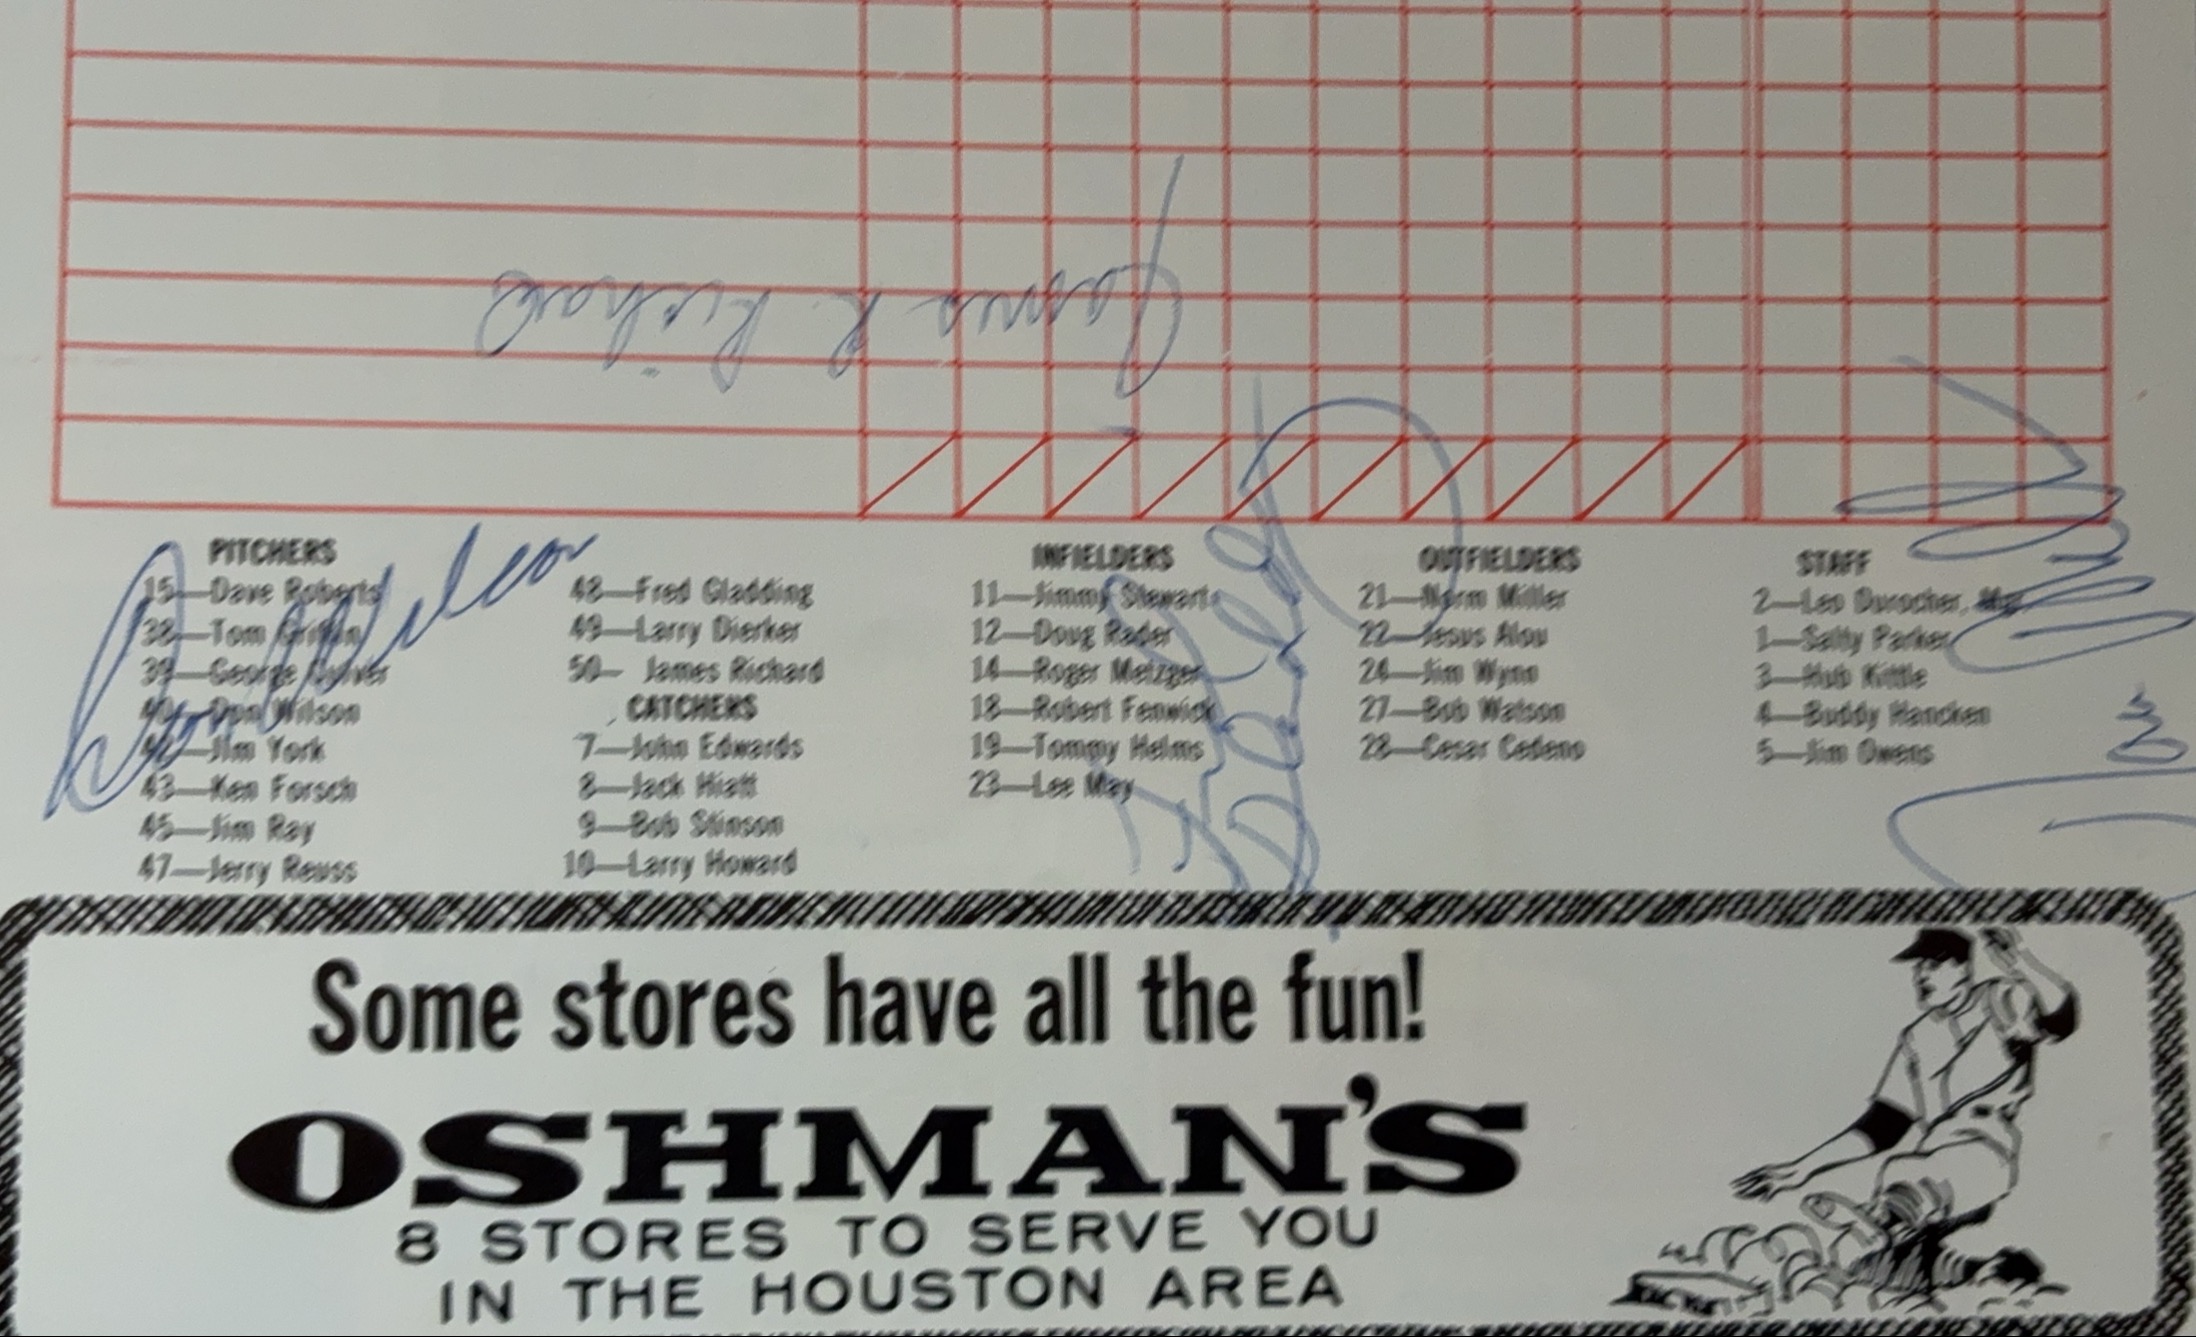 James R. Richard
PITCHERS
15—Dave Roberts
38—Tom Griffin
39—George Culver
40—Don Wilson
42—Jim York
43—Ken Forsch
45—Jim Ray
47—Jerry Reuss
48—Fred Gladding
49—Larry Dierker
50— James Richard
CATCHERS
7—John Edwards
8—Jack Hiatt
9—Bob Stinson
10—Larry Howard
INFIELDERS
11—Jimmy Stewart
12—Doug Rader
14—Roger Metzger
18—Robert Fenwick
19—Tommy Helms
23—Lee May
OUTFIELDERS
21—Norm Miller
22—Jesus Alou
24—Jim Wynn
27—Bob Watson
28—Cesar Cedeno
STAFF
2—Leo Durocher, Mgr.
1—Salty Parker
3—Hub Kittle
4—Buddy Hancken
5—Jim Owens
Don Wilson
Salty Parker
Some stores have all the fun!
OSHMAN'S
8 STORES TO SERVE YOU
IN THE HOUSTON AREA